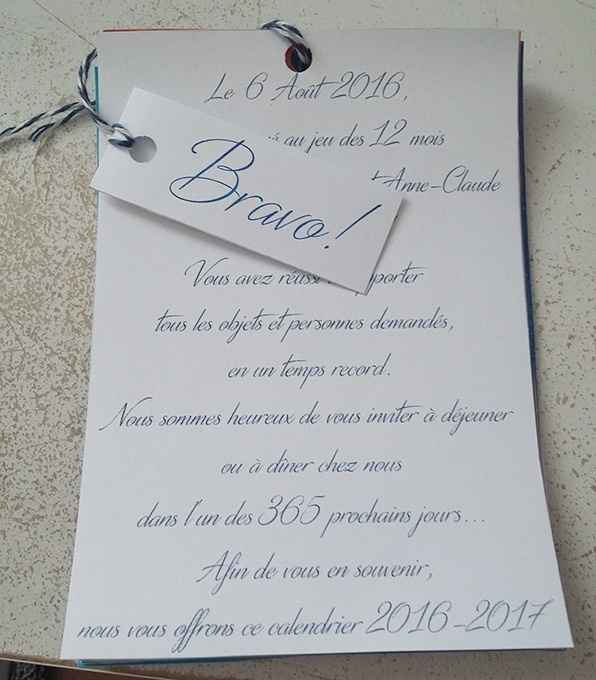 Le 6 Août 2016,
au jeu des 12 mois
Anne-Claude
Bravo!
Vous avez
tous les objets et personnes demandés,
en un temps record.
Nous sommes heureux de vous inviter à déjeuner
ou à dîner chez nous
dans l'un des 365 prochains jours...
Afin de vous en souvenir,
nous vous offrons ce calendrier 2016-2017